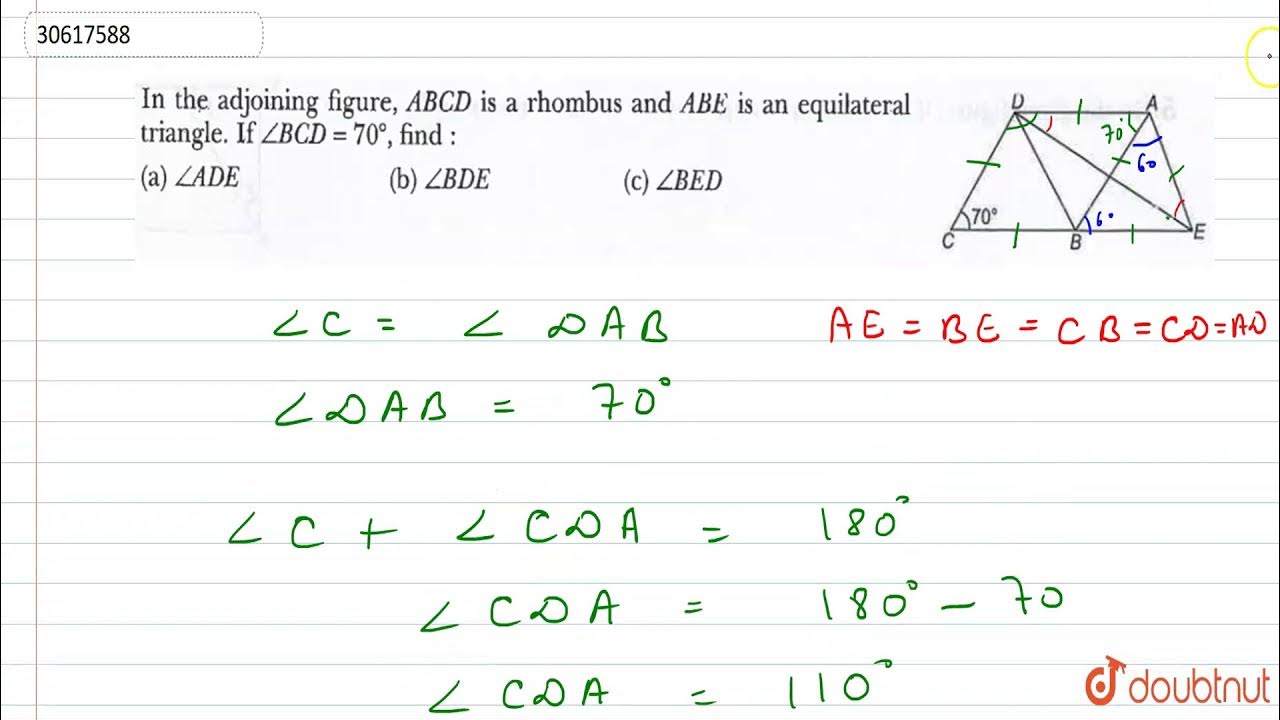 30617588
In the adjoining figure, ABCD is a rhombus and ABE is an equilateral
triangle. If ∠BCD = 70°, find :
(a) ∠ADE (b) ∠BDE (c) ∠BED
D A
70 60
70° 60
C B E
∠C = ∠DAB AE = BE = CB = CD = AD
∠DAB = 70°
∠C + ∠CDA = 180°
∠CDA = 180° - 70
∠CDA = 110°
doubtnut